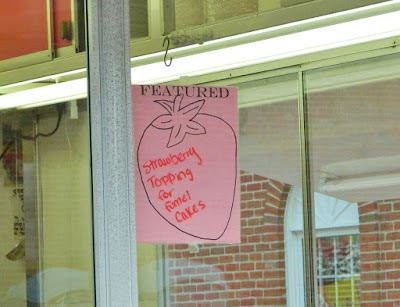 FEATURED
Strawberry
Topping
for
Funnel
Cakes